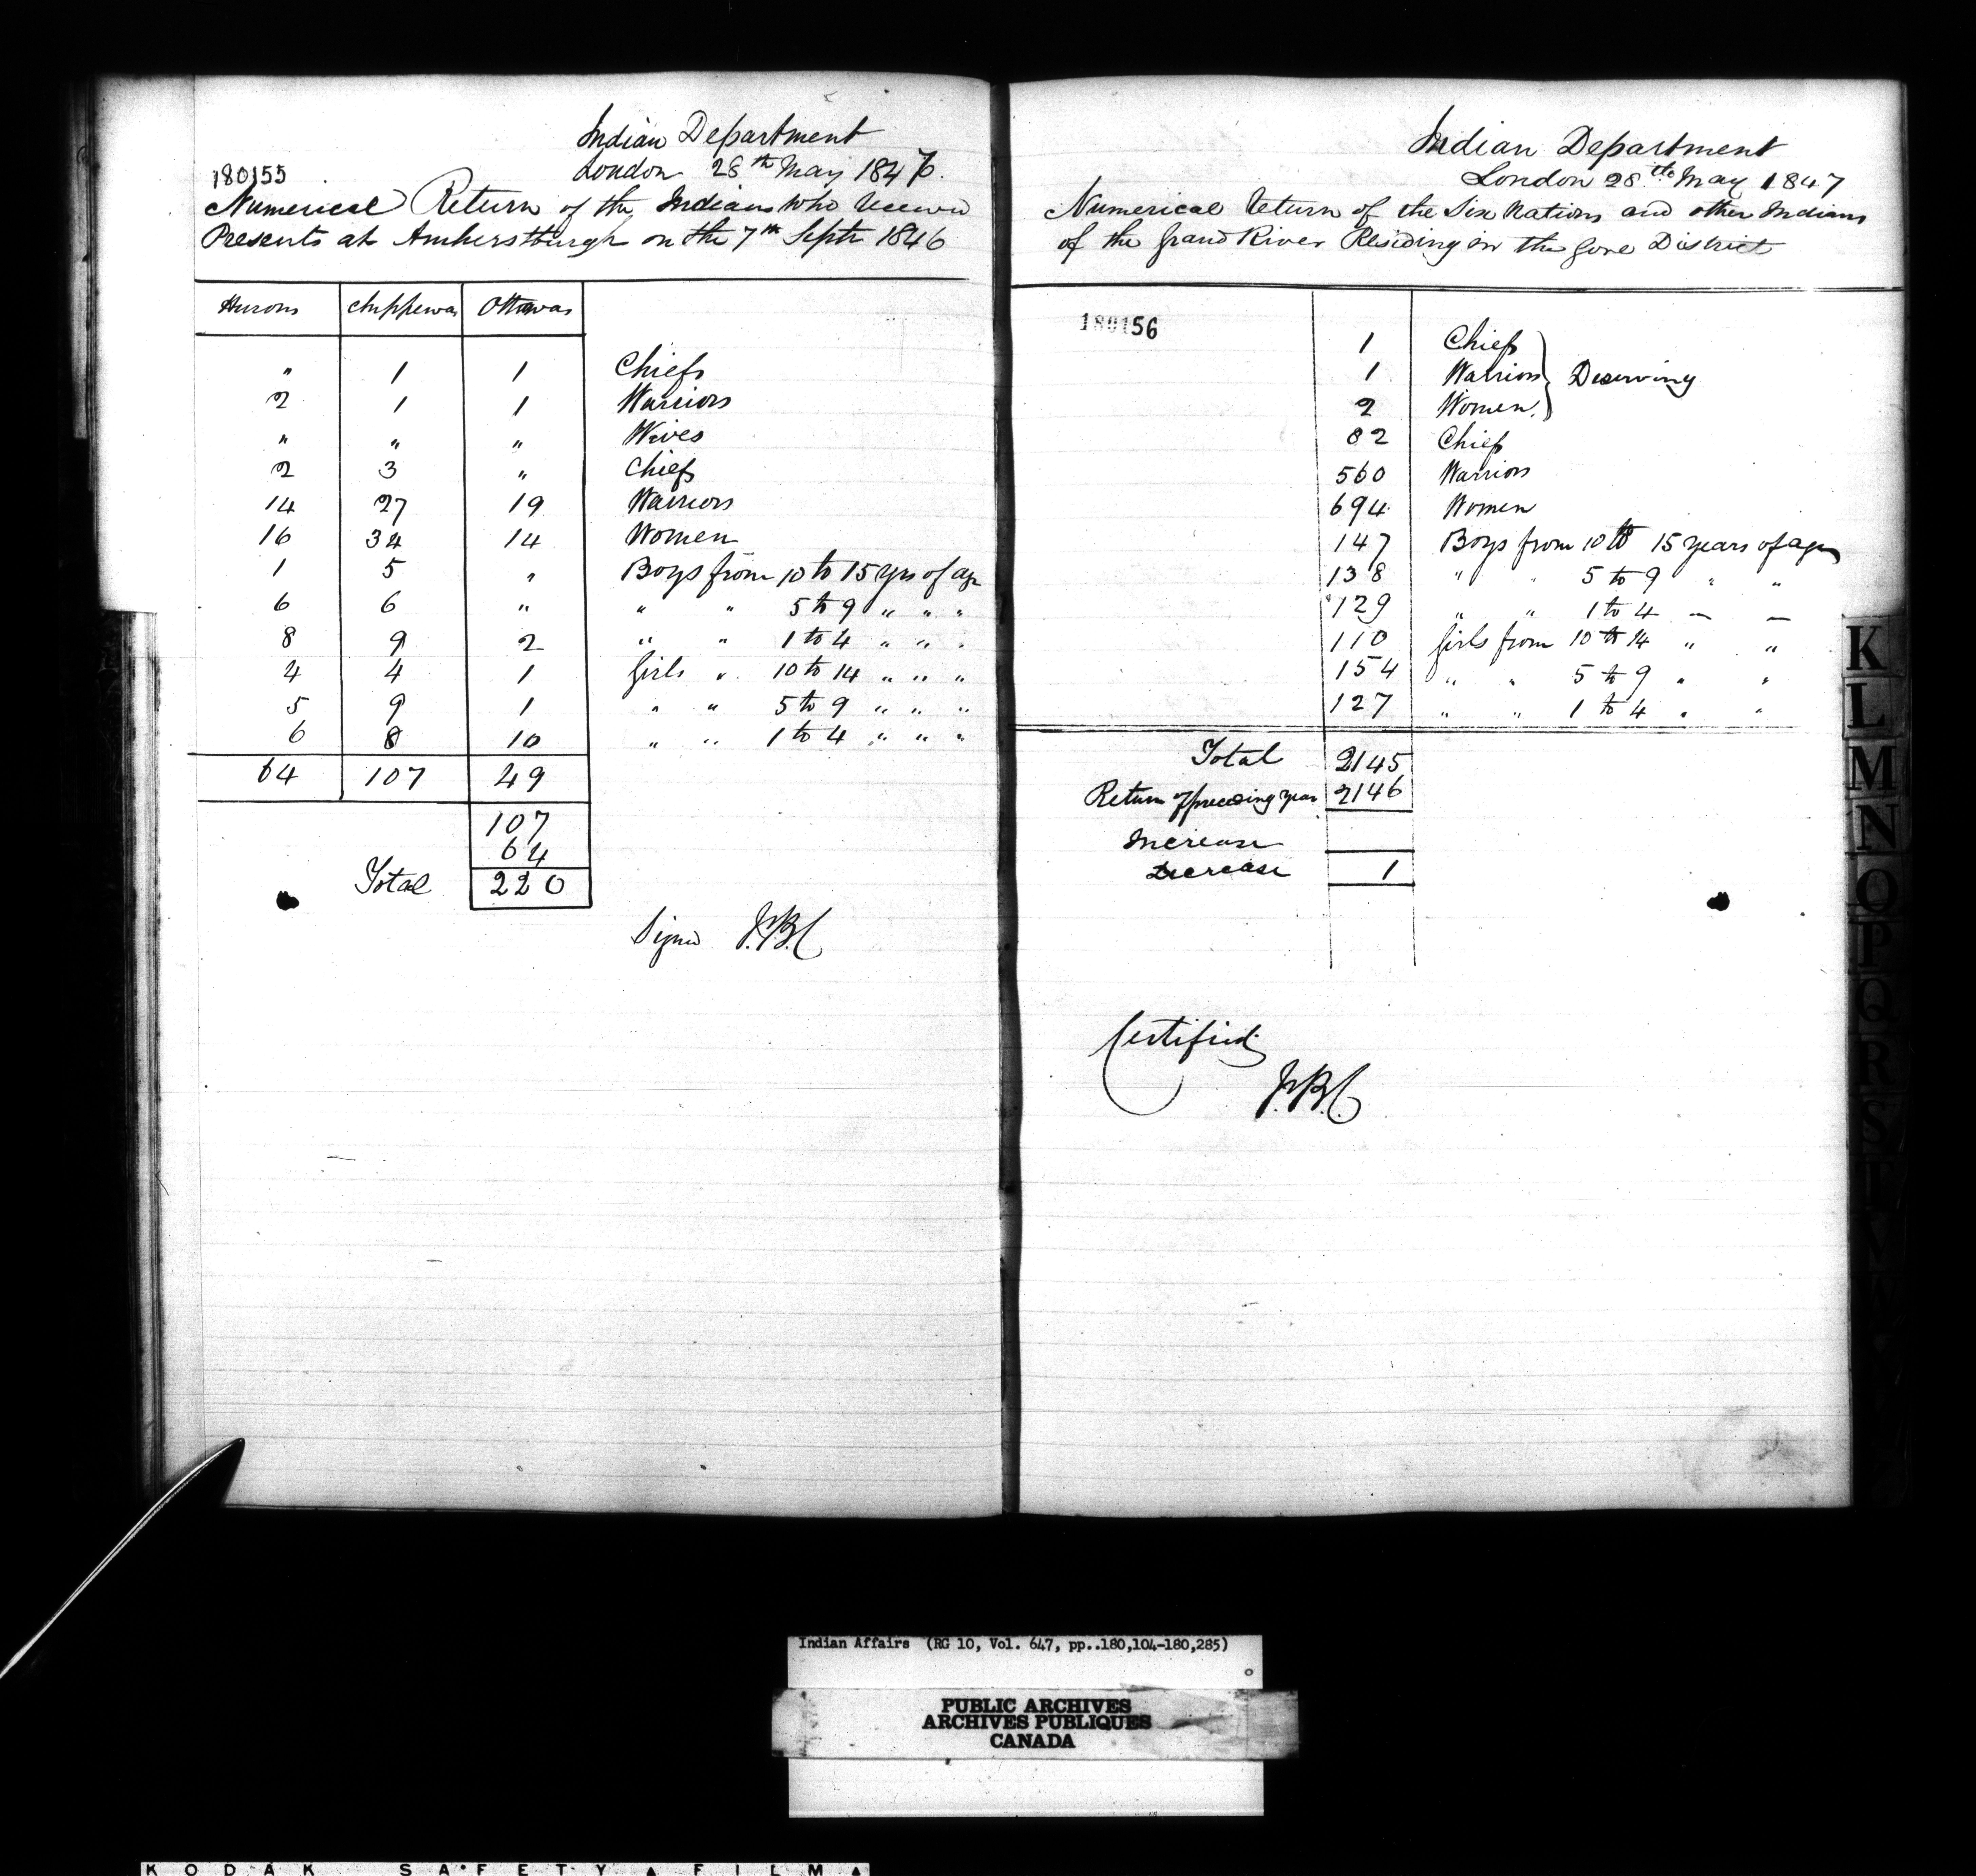 Indian Department
180155
London 28th May 1847.
Numerical Return of the Indians who receive
Presents at Amherstburgh on the 7th Septr 1846
Hurons Chippewas Ottawas
" 1 1 Chiefs
2 1 1 Warriors
" " " Wives
2 3 " Chiefs
14 27 19 Warriors
16 34 14 Women
1 5 " Boys from 10 to 15 yrs of age
6 6 " " " 5 to 9 " " "
8 9 2 " " 1 to 4 " " "
4 4 1 Girls " 10 to 14 " " "
5 9 1 " " 5 to 9 " " "
6 8 10 " " 1 to 4 " " "
64 107 49
107
64
Total 220
Signed J.B.C
Indian Department
London 28th May 1847
Numerical Return of the Six Nations and other Indians
of the Grand River Residing in the Gore District
180156
1 Chiefs
1 Warriors } Deserving
2 Women.
82 Chiefs
560 Warriors
694 Women
147 Boys from 10 to 15 years of age
138 " " 5 to 9 " "
129 " " 1 to 4 — —
110 Girls from 10 to 14 " "
154 " " 5 to 9 " "
127 " " 1 to 4 " "
Total 2145
Return of preceding year 2146
Increase
Decrease 1
Certified
J.B.C.
K
L
M
N
O
P
Q
R
S
T
V
W
Indian Affairs (RG 10, Vol. 647, pp..180,104-180,285)
PUBLIC ARCHIVES
ARCHIVES PUBLIQUES
CANADA
KODAK SAFETY FILM